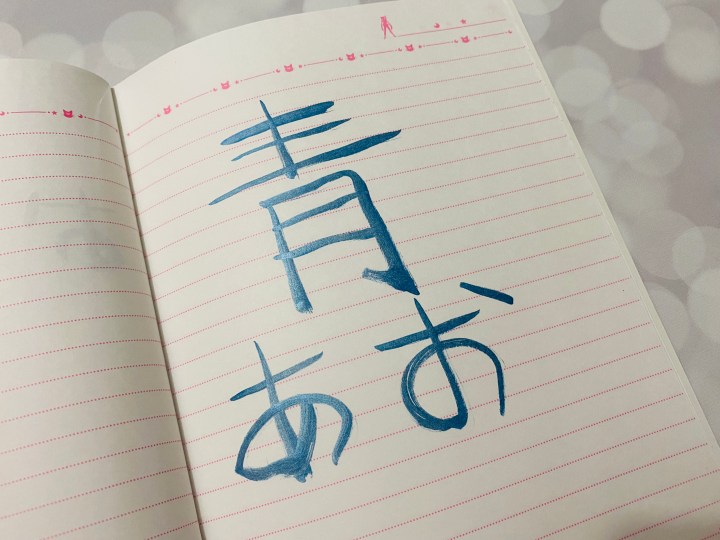 青
あお